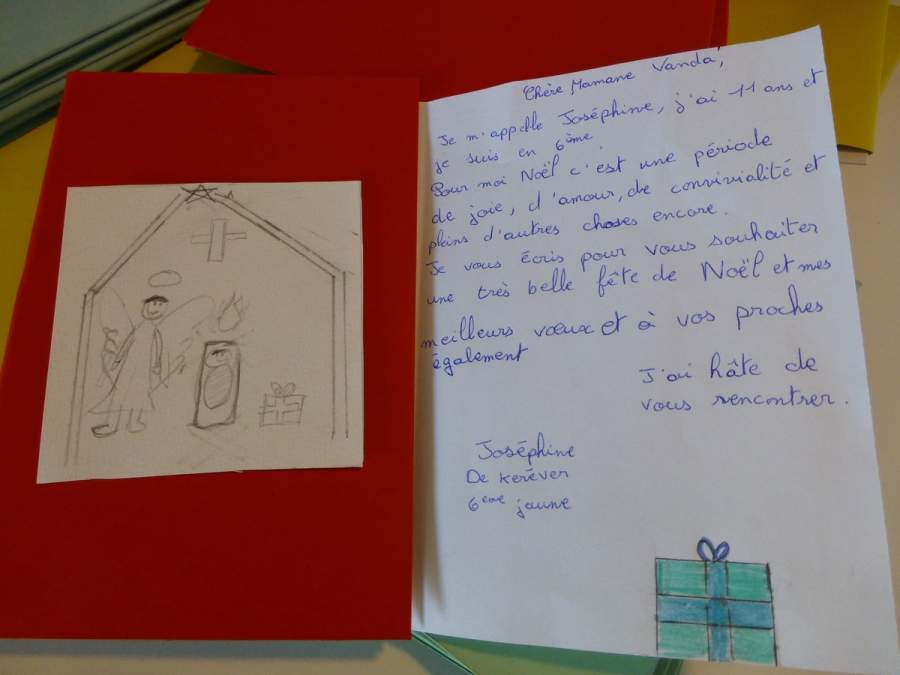 Chère Mamane Vanda,
Je m'appelle Joséphine, j'ai 11 ans et
je suis en 6ème.
Pour moi Noël c'est une période
de joie, d'amour, de convivialité et
pleins d'autres choses encore.
Je vous écris pour vous souhaiter
une très belle fête de Noël et mes
meilleurs vœux et à vos proches
également
J'ai hâte de
vous rencontrer.
Joséphine
De Keréver
6ème jaune